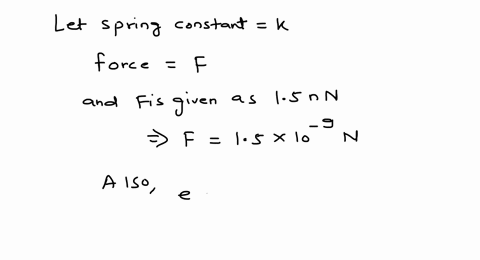 Let spring constant = k
force = F
and F is given as 1.5 nN
⇒ F = 1.5 × 10⁻⁹ N
Also, e